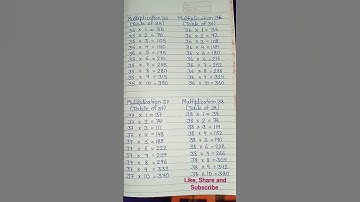 Multiplication 35
(Table of 35)
35 × 2 = 70
35 × 3 = 105
35 × 4 = 140
35 × 5 = 175
35 × 6 = 210
35 × 7 = 245
35 × 8 = 280
35 × 9 = 315
35 × 10 = 350
Multiplication 36
(Table of 36)
36 × 1 = 36
36 × 2 = 72
36 × 3 = 108
36 × 4 = 144
36 × 5 = 180
36 × 6 = 216
36 × 7 = 252
36 × 8 = 288
36 × 9 = 324
36 × 10 = 360
Multiplication 37
(Table of 37)
37 × 1 = 37
37 × 2 = 74
37 × 3 = 111
37 × 4 = 148
37 × 5 = 185
37 × 6 = 222
37 × 7 = 259
37 × 8 = 296
37 × 9 = 333
37 × 10 = 370
Multiplication 38
(Table of 38)
38 × 2 = 76
38 × 3 = 114
38 × 4 = 152
38 × 5 = 190
38 × 6 = 228
38 × 7 = 266
38 × 8 = 304
38 × 9 = 342
38 × 10 = 380
Like, Share and
Subscribe